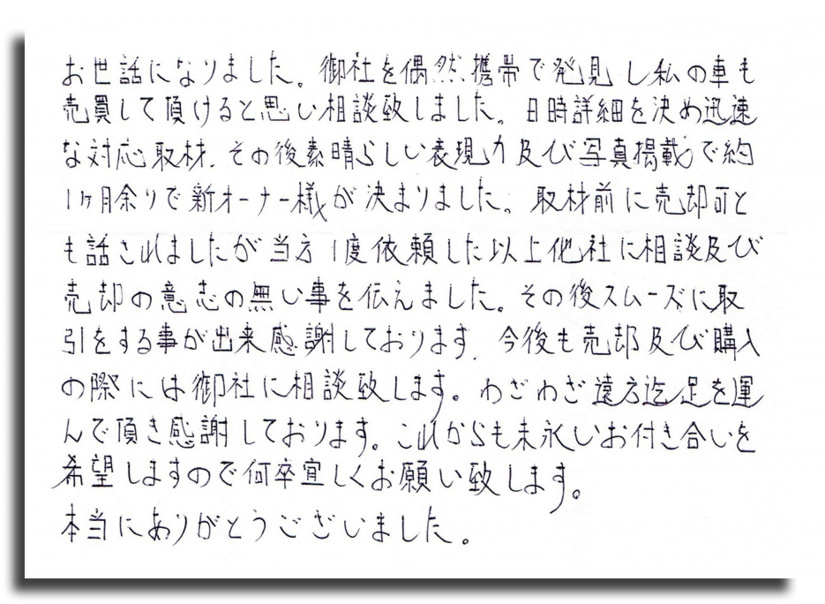 お世話になりました。御社を偶然、携帯で発見し私の車も
売買して頂けると思い相談致しました。日時詳細を決め迅速
な対応取材、その後素晴らしい表現力及び写真掲載で約
1ヶ月余りで新オーナー様が決まりました。取材前に売却可と
も話されましたが当方1度依頼した以上他社に相談及び
売却の意志の無い事を伝えました。その後スムーズに取
引をする事が出来感謝しております。今後も売却及び購入
の際には御社に相談致します。わざわざ遠方迄足を運
んで頂き感謝しております。これからも末永いお付き合いを
希望しますので何卒宜しくお願い致します。
本当にありがとうございました。